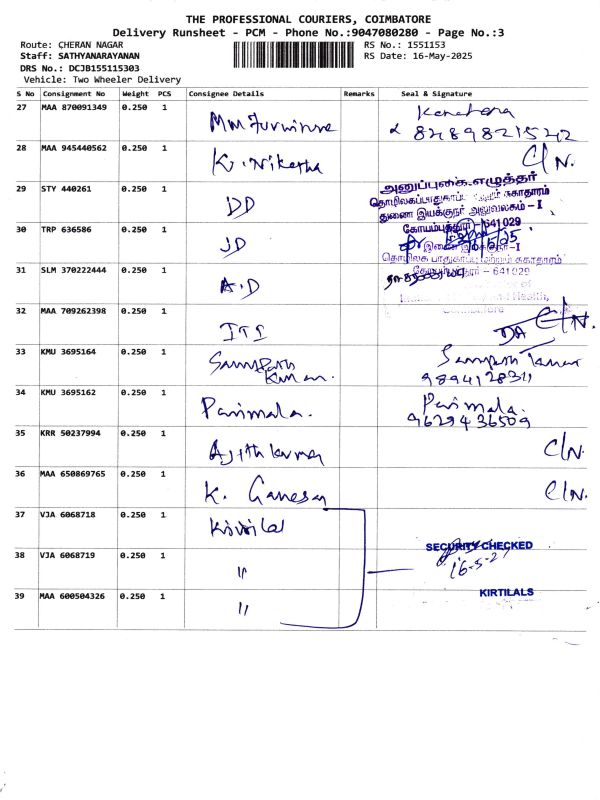 THE PROFESSIONAL COURIERS, COIMBATORE
Delivery Runsheet - PCM - Phone No.:9047080280 - Page No.:3
Route: CHERAN NAGAR
RS No.: 1551153
Staff: SATHYANARAYANAN
RS Date: 16-May-2025
DRS No.: DCJB155115303
Vehicle: Two Wheeler Delivery
S No Consignment No Weight PCS Consignee Details Remarks Seal & Signature
27 MAA 870091349 0.250 1 MM Furniture
82489821542
28 MAA 945440562 0.250 1 K. Niketha C/N.
29 STY 440261 0.250 1 DD
அனுப்புகை எழுத்தர்
தொழிலகப்பாதுகாப்பு சுகாதாரம்
துணை இயக்குநர் அலுவலகம் - I
கோயம்புத்தூர் - 641029
30 TRP 636586 0.250 1 JD
இணை இயக்குநர்-I
தொழிலக பாதுகாப்பு மற்றும் சுகாதாரம்
கோயம்புத்தூர் - 641029
31 SLM 370222444 0.250 1 A.D
32 MAA 709262398 0.250 1 ITI C/N.
33 KMU 3695164 0.250 1 Sampath Kumar Sampath Kumar
9894128311
34 KMU 3695162 0.250 1 Parimala. Parimala.
9629436509
35 KRR 50237994 0.250 1 Ajith kumar C/N.
36 MAA 650869765 0.250 1 K. Ganesan C/N.
37 VJA 6068718 0.250 1 Kirtilal
SECURITY CHECKED
38 VJA 6068719 0.250 1 "
16-5-2
KIRTILALS
39 MAA 600504326 0.250 1 "